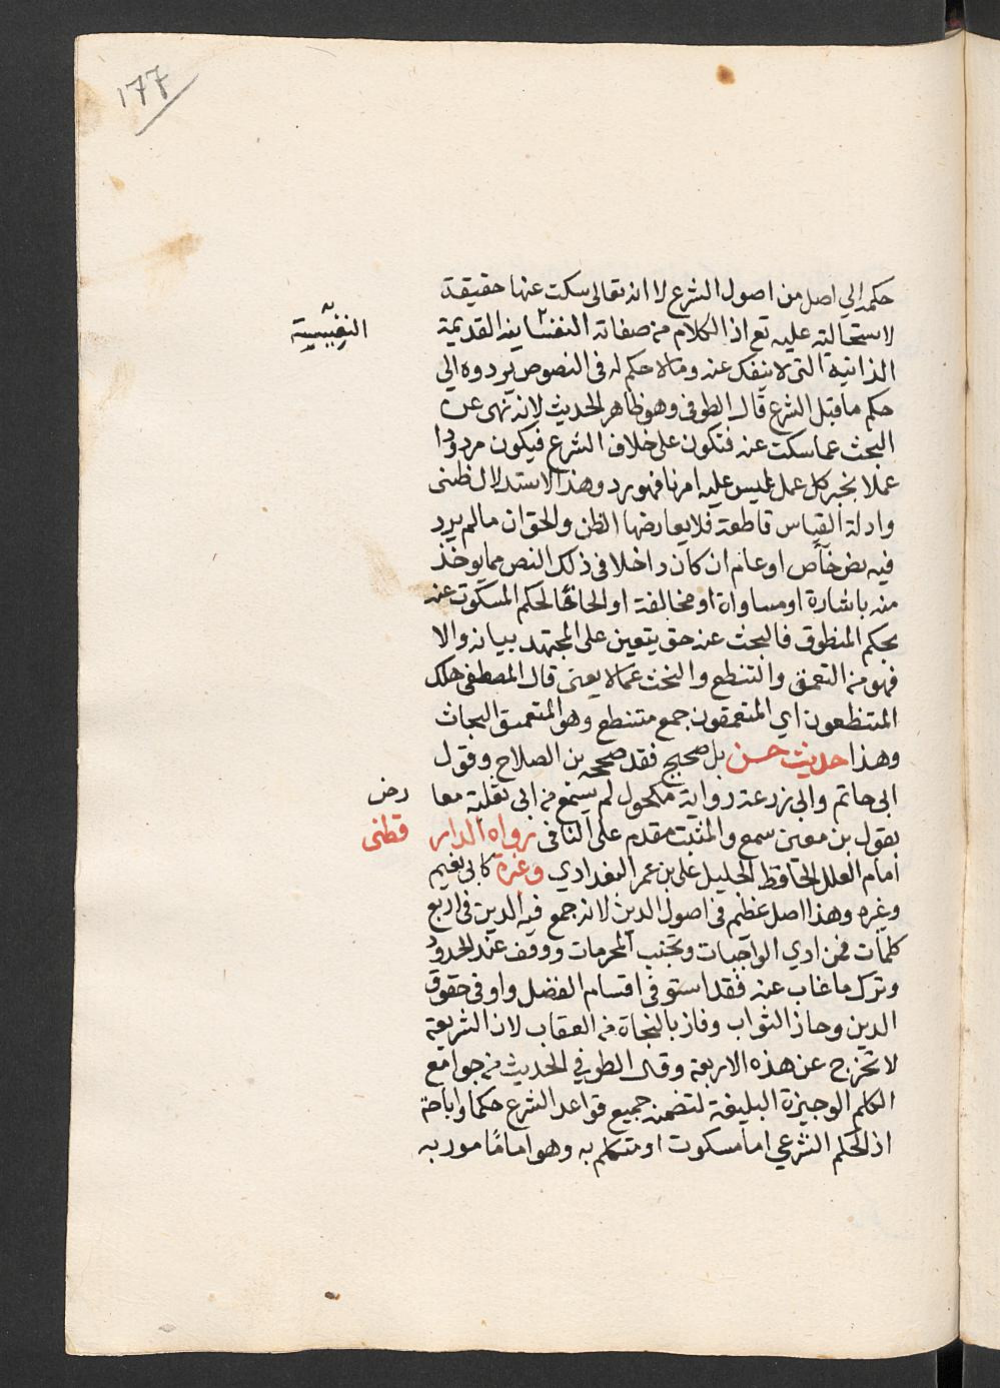 ١٧٧
حكمه الي اصل من اصول الشرع لا انه تعالى سكت عنها حقيقة
لاستحالته عليه تع اذ الكلام من صفاته النفسانية القديمة
النفسية
الذاتية التى لا ينفك عنه ومالا حكم له فى النصوص يردوه الي
حكم ما قبل الشرع قال الطوفى وهو ظاهر الحديث لانه نهى عن
البحث عما سكت عنه فتكون على خلاف الشرع فيكون مردودا
عملا بخبر كل عمل ليس عليه امرنا فهو رد وهذا الاستدلال ظنى
وادلة القياس قاطعة فلا يعارضها الظن والحق ان مالم يرد
فيه نص خاص او عام ان كان داخلا فى ذلك النص مما يوخذ
منه باشارة او مساواة او مخالفة او الحاقا لحكم المسكوت عنه
بحكم المنطوق فالبحث عنه حق يتعين على المجتهد بيانه والا
فهو من التعمق والتنطع والبحث عمالا يعنى قال المصطفى هلك
المتنطعون اي المتعمقون جمع متنطع وهو المتعمق البحاث
وهذا حديث حسن بل صحيح فقد صححه بن الصلاح وقول
ابى حاتم وابى زرعة رواية مكحول لم يسمع من ابى ثعلبة معارض
بقول بن معين سمع والمثبت مقدم على النافى رواه الدارقطنى
امام العلل الحافظ الجليل على بن عمر البغدادي وغيره كابى نعيم
وغيره وهذا اصل عظيم فى اصول الدين لانه جمع فيه الدين فى اربع
كلمات فمن ادي الواجبات وتجنب المحرمات ووقف عند الحدود
وترك ما غاب عنه فقد استوفى اقسام الفضل واوفى حقوق
الدين وحاز الثواب وفاز بالنجاة من العقاب لان الشريعة
لا تخرج عن هذه الاربعة وقال الطوفي الحديث من جوامع
الكلم الوجيزة البليغة لتضمنه جميع قواعد الشرع حكما واباحة
اذ الحكم الشرعي اما مسكوت او متكلم به وهو اما مامور به